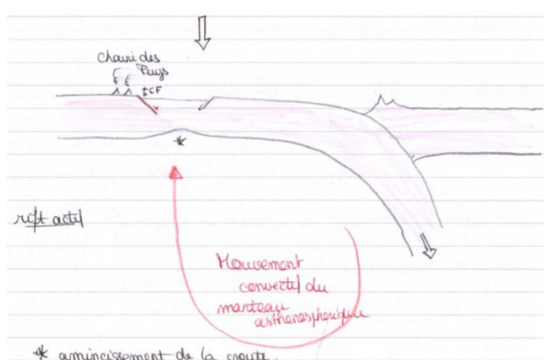 Chaine des
Puys
CF
rift actif
Mouvement
convectif du
manteau
asthenospherique
* amincissement de la croute.